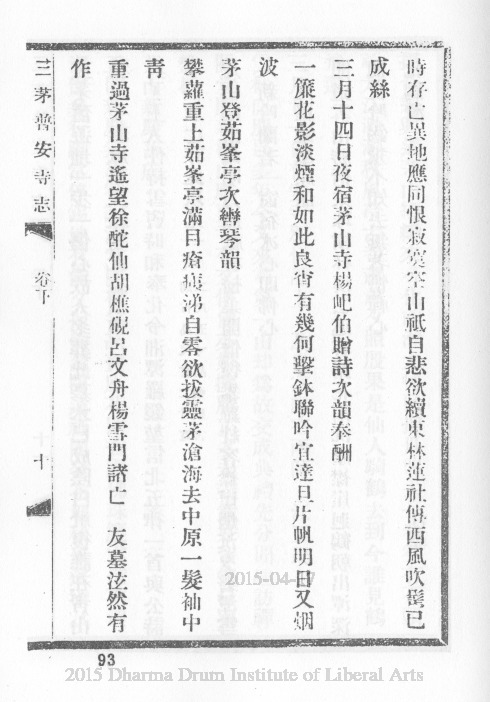 時存亡異地應同恨寂寞空山祇自悲欲續東林蓮社傳西風吹鬢已
成絲
三月十四日夜宿茅山寺楊屺伯贈詩次韻奉酬
一簾花影淡煙和如此良宵有幾何擊鉢聯吟宜達旦片帆明日又烟
波
茅山登茹峯亭次轡琴韻
攀蘿重上茹峯亭滿目瘡痍涕自零欲拔靈茅滄海去中原一髮袖中
靑
重過茅山寺遙望徐酡仙胡樵硯呂文舟楊雪門諸亡 友墓泫然有
作
三茅普安寺志
卷下
十
93
2015-04-
2015 Dharma Drum Institute of Liberal Arts